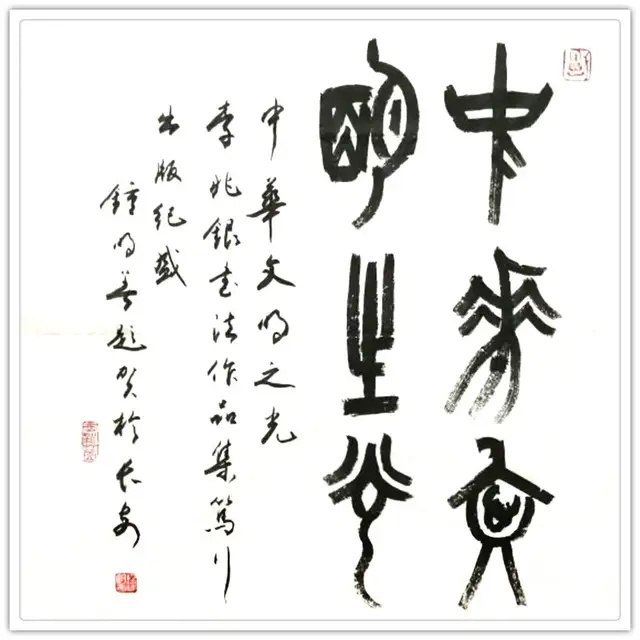 中華文
明之光
中華文明之光
李兆銀書法作品集篤行
出版紀盛
鍾明善題賀於長安